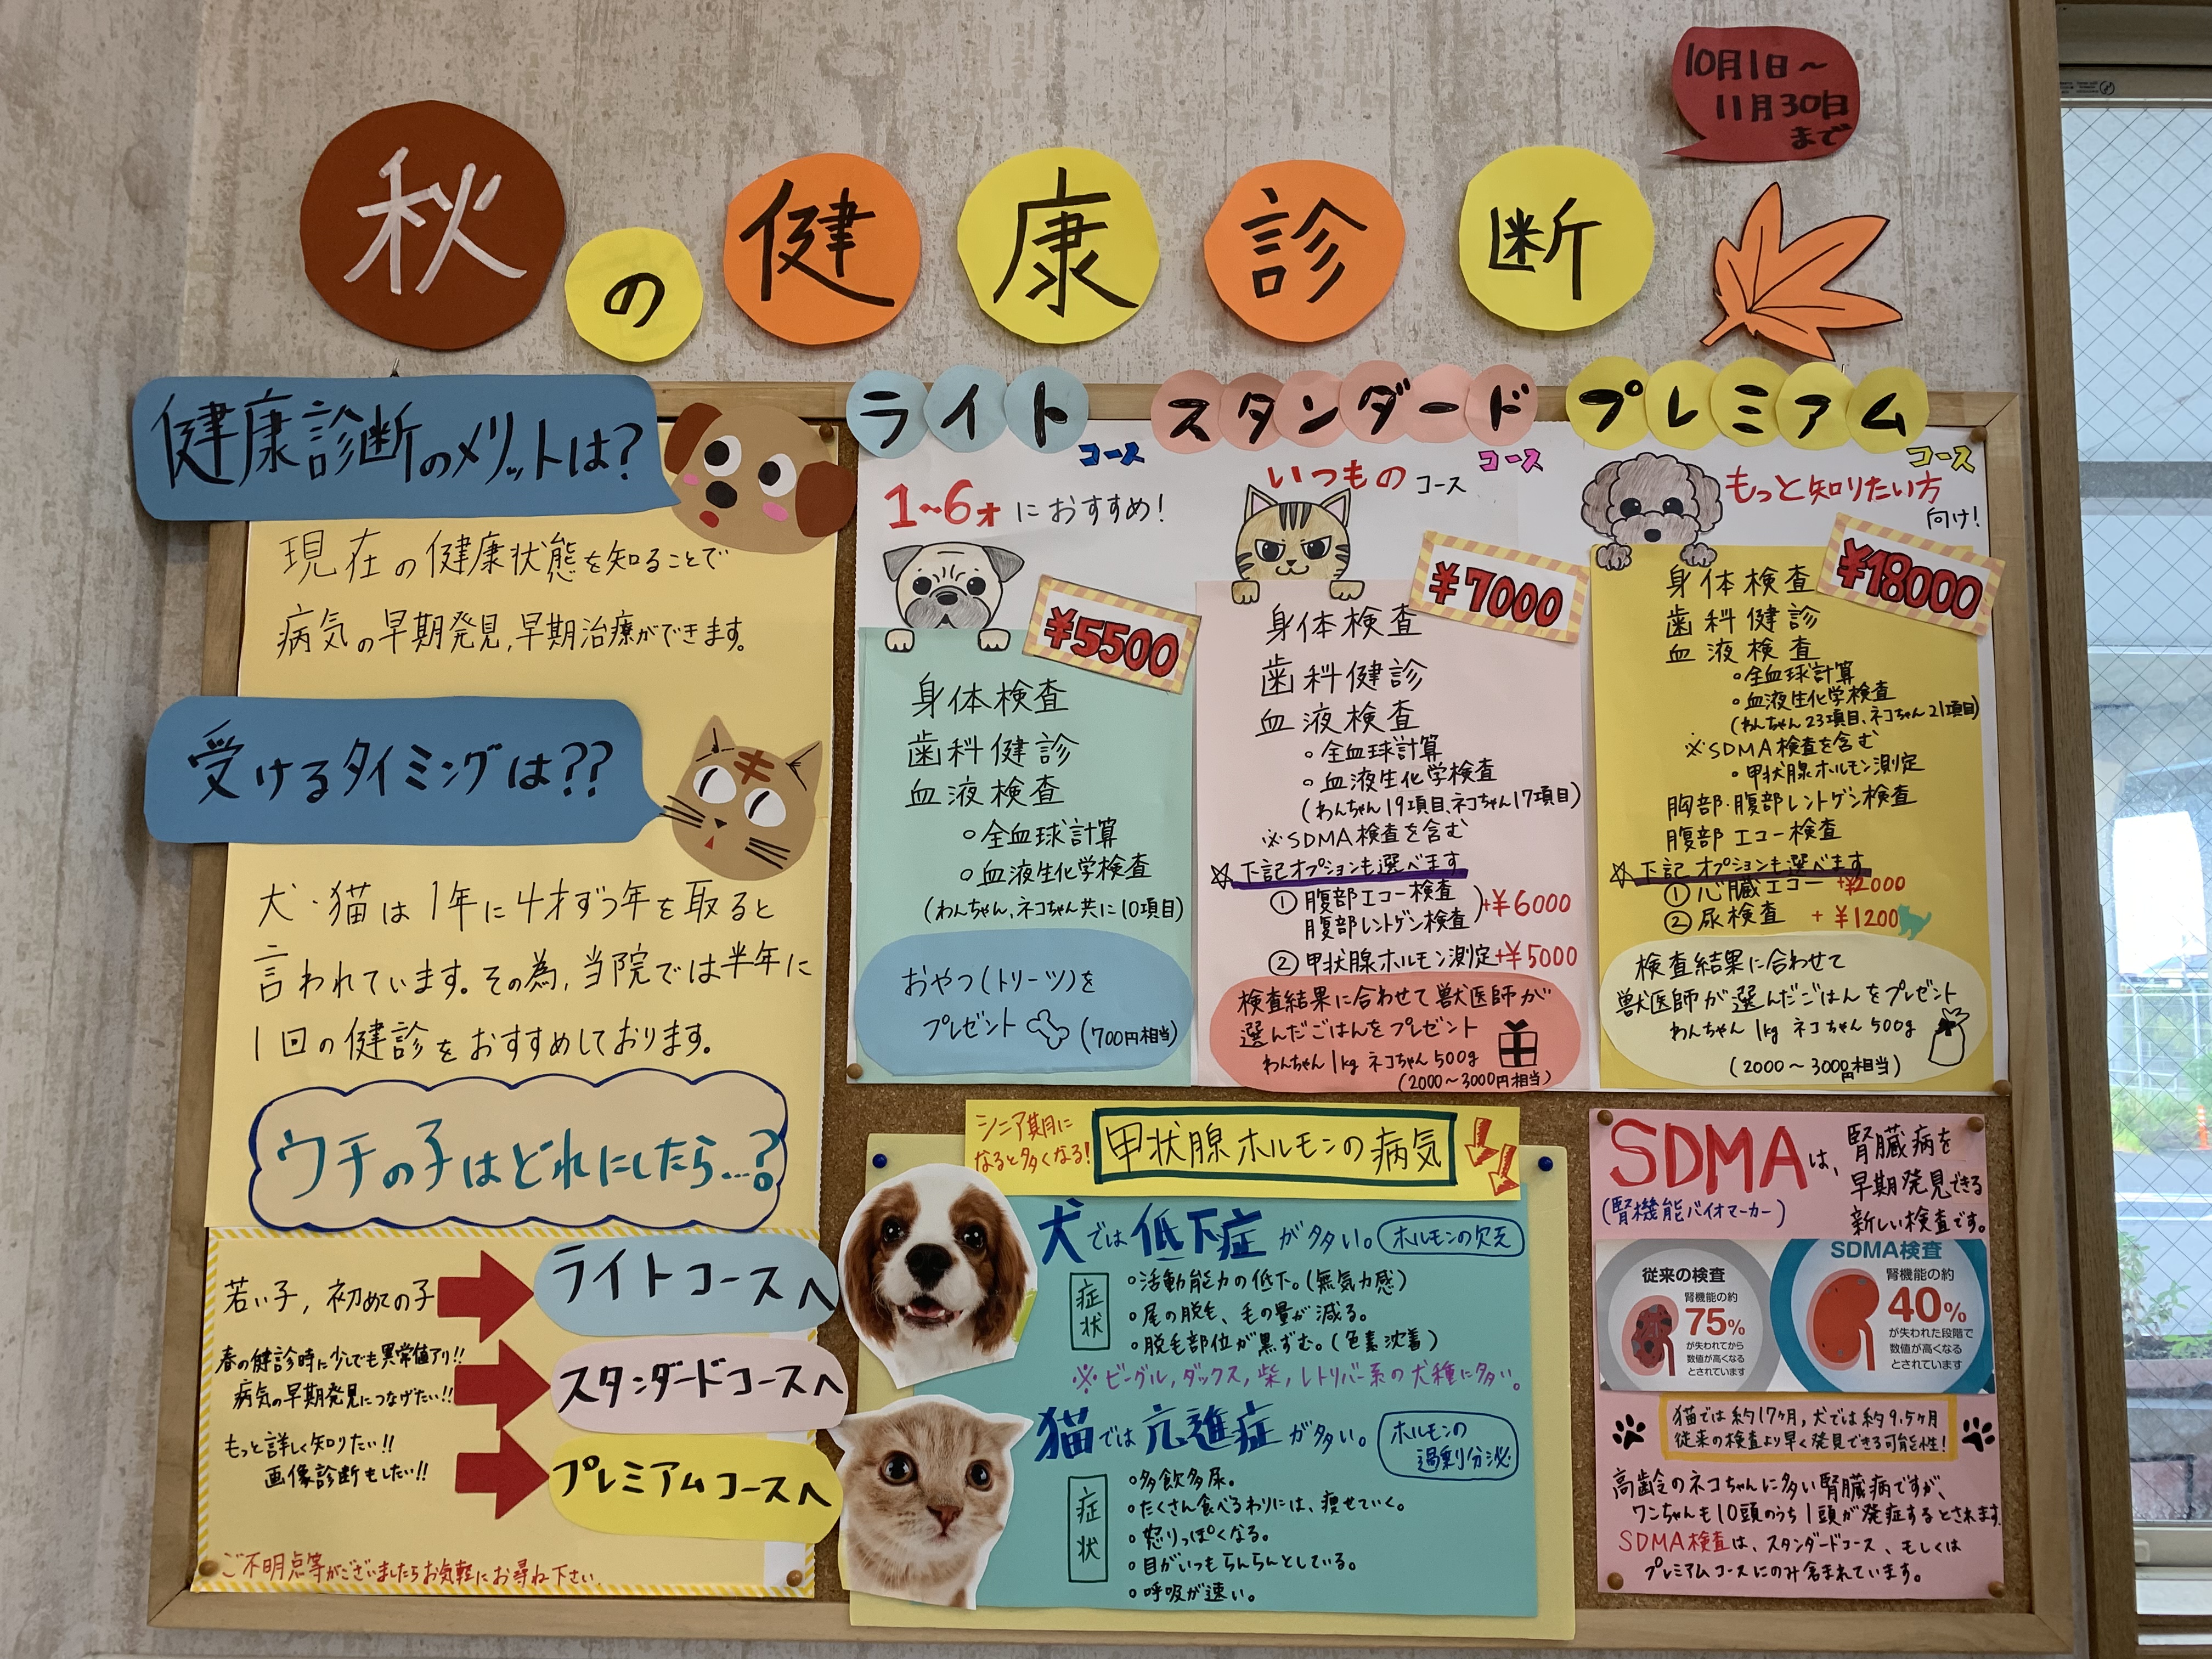 10月1日～
11月30日
まで
秋の健康診断
健康診断のメリットは?
現在の健康状態を知ることで
病気の早期発見、早期治療ができます。
受けるタイミングは??
犬・猫は1年に4才ずつ年を取ると
言われています。その為、当院では半年に
1回の健診をおすすめしております。
ウチの子はどれにしたら…?
若い子、初めての子
ライトコースへ
春の健診時に少しでも異常値アリ!!
病気の早期発見につなげたい!!
スタンダードコースへ
もっと詳しく知りたい!!
画像診断もしたい!!
プレミアムコースへ
ご不明点等がございましたらお気軽にお尋ね下さい。
ライト
コース
1~6才におすすめ!
¥5500
身体検査
歯科健診
血液検査
○全血球計算
○血液生化学検査
(わんちゃん、ネコちゃん共に10項目)
おやつ(トリーツ)を
プレゼント
(700円相当)
スタンダード
コース
いつものコース
¥7000
身体検査
歯科健診
血液検査
○全血球計算
○血液生化学検査
(わんちゃん19項目、ネコちゃん17項目)
※SDMA検査を含む
☆下記オプションも選べます
①腹部エコー検査
腹部レントゲン検査
+¥6000
②甲状腺ホルモン測定+¥5000
検査結果に合わせて獣医師が
選んだごはんをプレゼント
わんちゃん1kg ネコちゃん500g
(2000～3000円相当)
プレミアム
コース
もっと知りたい方
向け!
¥18000
身体検査
歯科健診
血液検査
○全血球計算
○血液生化学検査
(わんちゃん23項目、ネコちゃん21項目)
※SDMA検査を含む
○甲状腺ホルモン測定
胸部・腹部レントゲン検査
腹部エコー検査
☆下記オプションも選べます
①心臓エコー +¥2000
②尿検査 +¥1200
検査結果に合わせて
獣医師が選んだごはんをプレゼント
わんちゃん1kg ネコちゃん500g
(2000～3000円相当)
シニア期に
なると多くなる!
甲状腺ホルモンの病気
犬では低下症が多い。
ホルモンの欠乏
症状
○活動能力の低下。(無気力感)
○尾の脱毛、毛の量が減る。
○脱毛部位が黒ずむ。(色素沈着)
※ビーグル,ダックス,柴,レトリバー系の犬種に多い。
猫では亢進症が多い。
ホルモンの
過剰分泌
症状
○多飲多尿。
○たくさん食べるわりには、痩せていく。
○怒りっぽくなる。
○目がいつもらんらんとしている。
○呼吸が速い。
SDMAは、
(腎機能バイオマーカー)
腎臓病を
早期発見できる
新しい検査です。
従来の検査
腎機能の約
75%
が失われてから
数値が高くなる
とされています
SDMA検査
腎機能の約
40%
が失われた段階で
数値が高くなる
とされています
猫では約17ヶ月,犬では約9.5ヶ月
従来の検査より早く発見できる可能性!
高齢のネコちゃんに多い腎臓病ですが、
ワンちゃんも10頭のうち1頭が発症するとされます
SDMA検査は、スタンダードコース、もしくは
プレミアムコースにのみ含まれています。